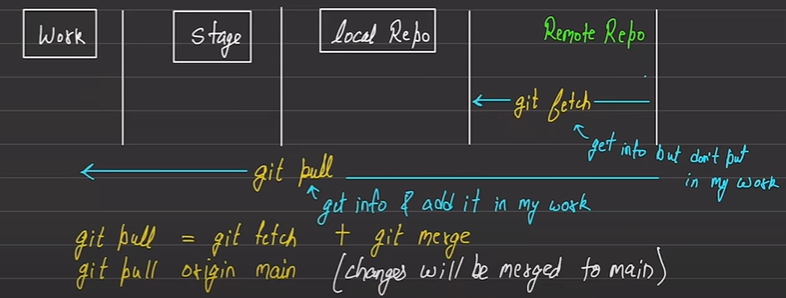 Work
Stage
local Repo
Remote Repo
git fetch
get info but don't put
in my work
git pull
get info & add it in my work
git pull = git fetch + git merge
git pull origin main (changes will be merged to main)